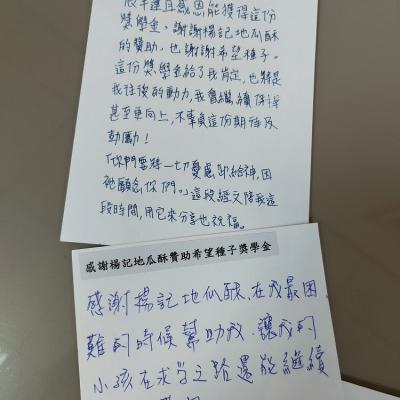 很幸運且感恩能獲得這份
獎學金，謝謝楊記地瓜酥
的贊助，也謝謝希望種子。
這份獎學金給了我肯定，也將是
我往後的動力，我會繼續保持
甚至更向上，不辜負這份期待及
鼓勵！
「你們要將一切憂慮卸給神，因
祂顧念你們。」這段經文陪我這
段時間，用它來分享也祝福。
感謝楊記地瓜酥贊助希望種子獎學金
感謝楊記地瓜酥，在我最困
難的時候幫助我，讓我的
小孩在求學之路還能繼續